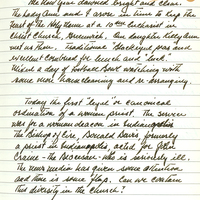 The New Year dawned bright and clear.
The lady Ann and I arose in time to keep the
Feast of the Holy Name at a 10 am Eucharist
Christ Church, Greenwich. Our daughter Kelly Ann
met us there. Traditional blackeyed peas and
excellent cornbread for lunch and luck.
Then a day of football Bowl watching with
some more housecleaning and re-arranging.
Today the first "legal" or canonical
ordination of a woman priest. The service
was for a woman deacon in Indianapolis
The Bishop of Erie, Donald Davis, formerly
a priest in Indianapolis, acted for John
Craine - the Diocesan - who is seriously ill.
The news media has given some attention
and there is some flap. Can we contain
this diversity in the Church?